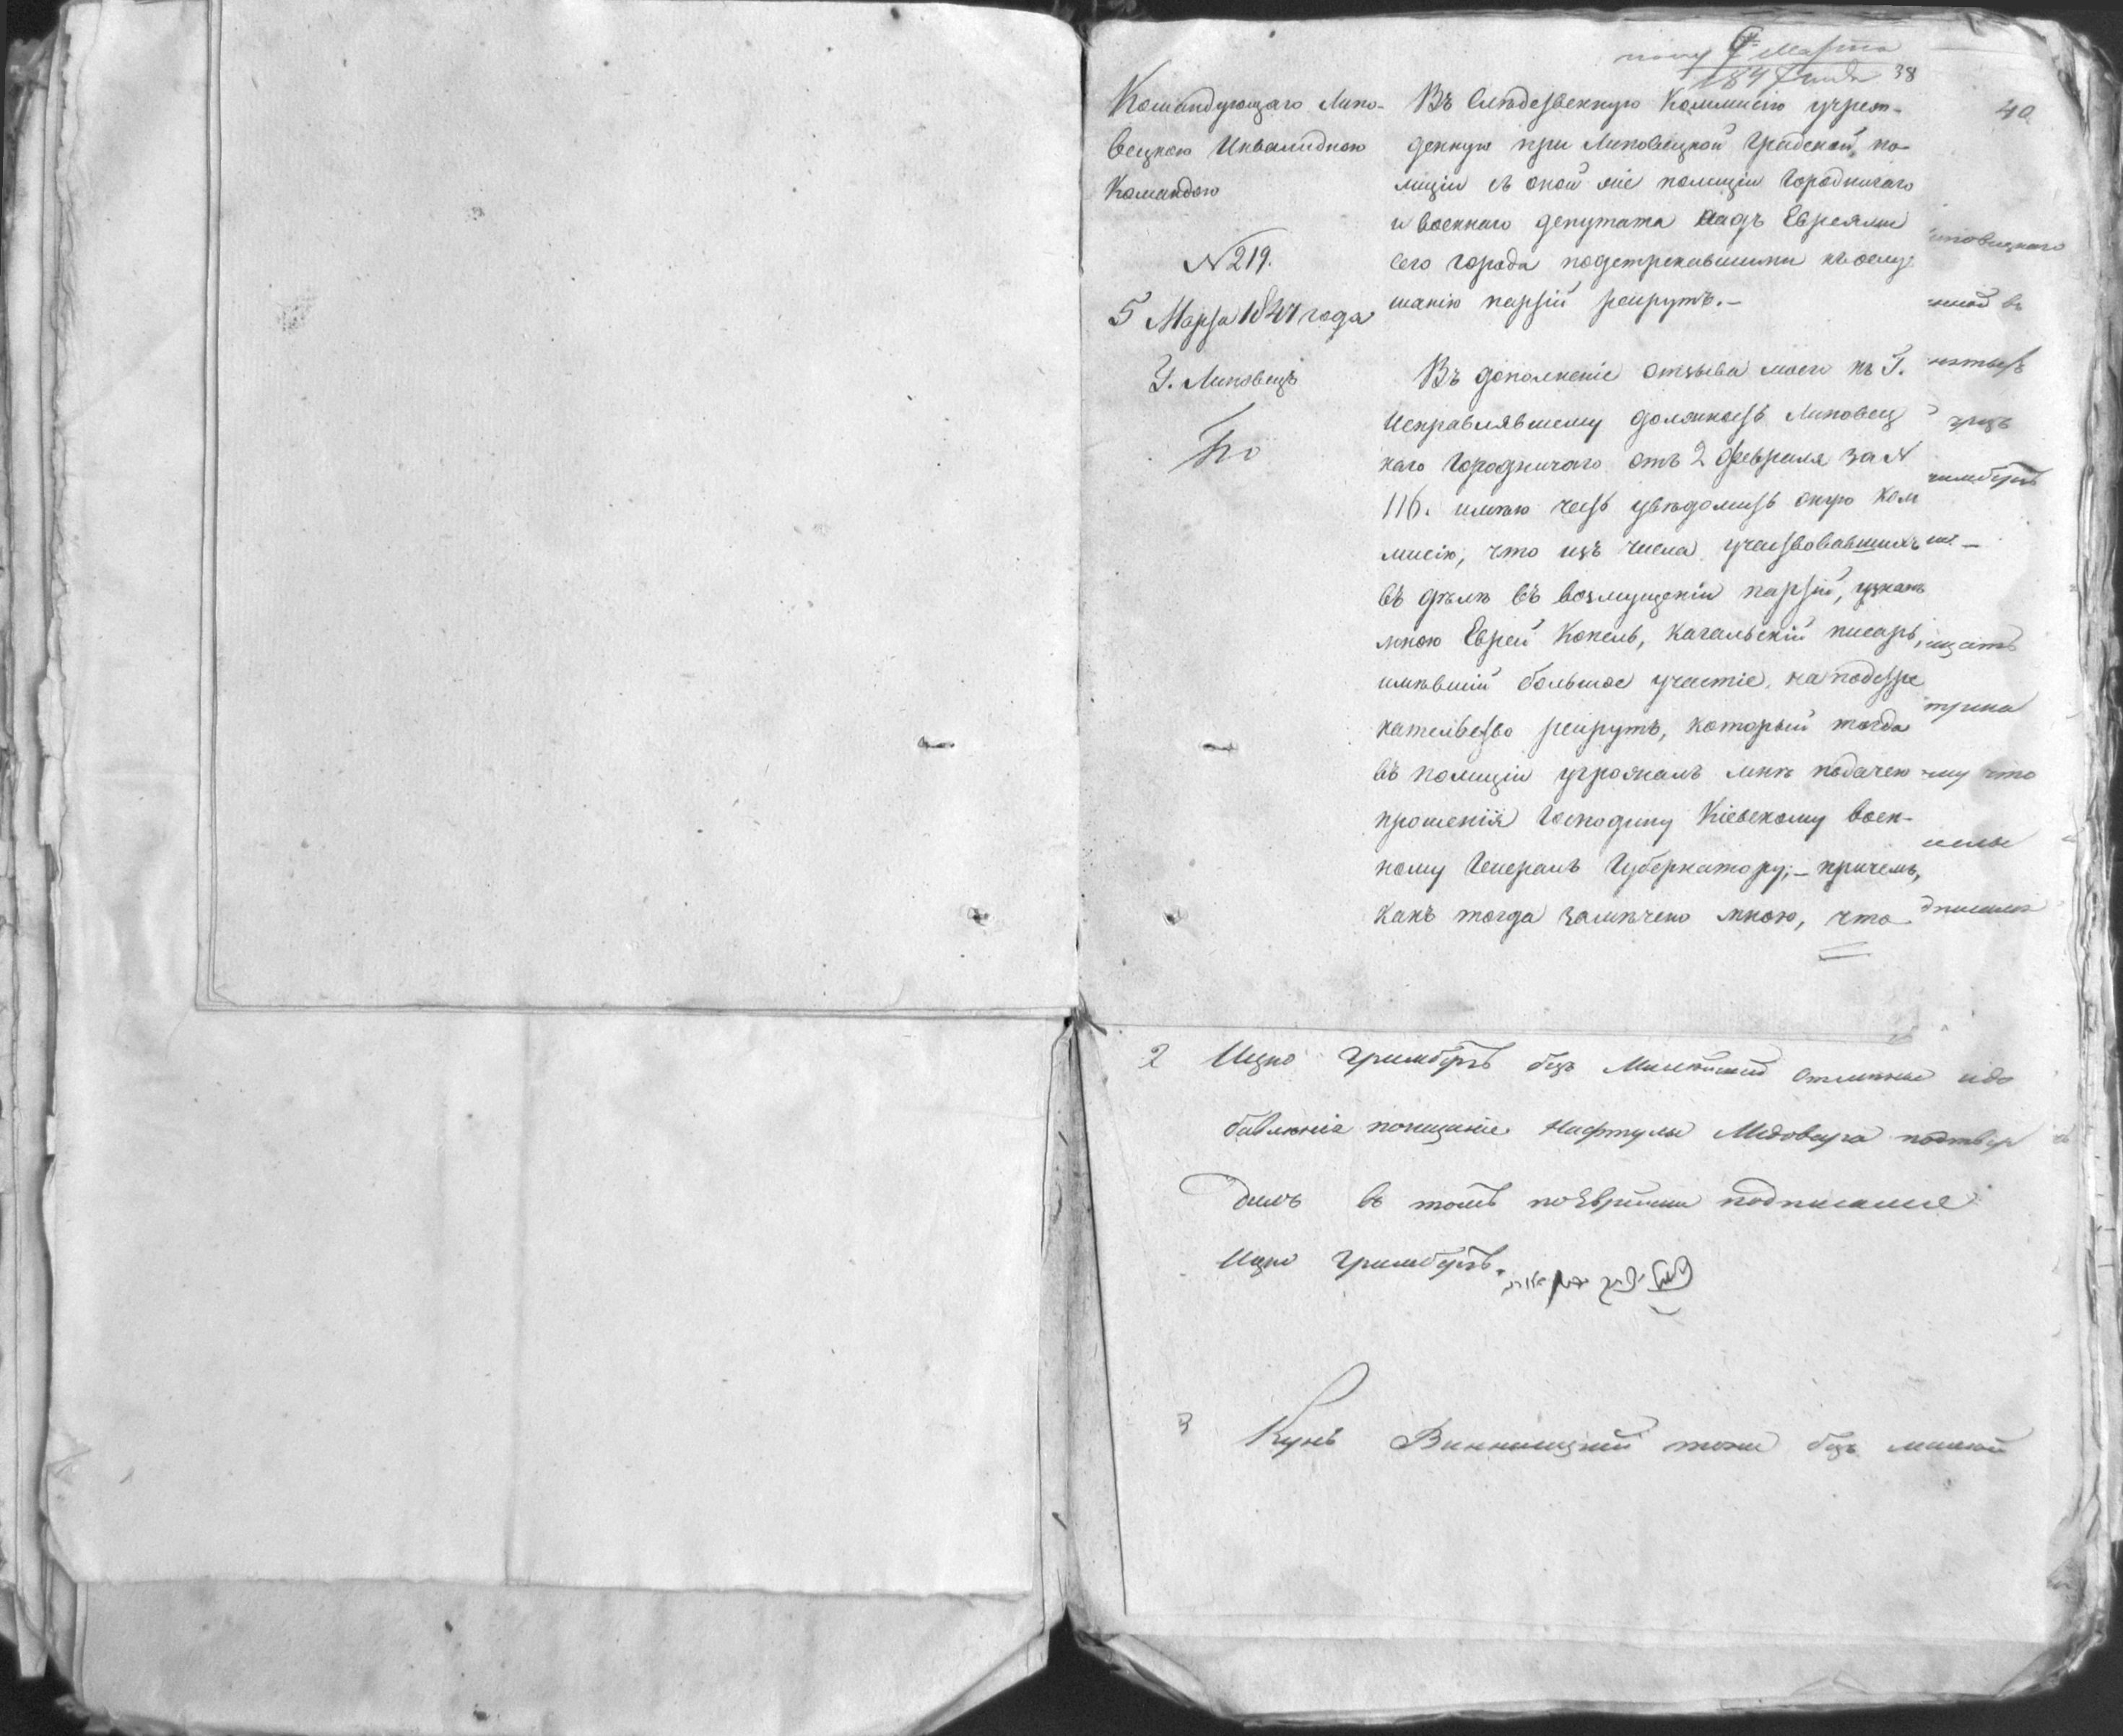 6 Марта
1847 года 38
40
Командующаго Липо-
вецкою Инвалидною
Командою
№ 219.
5 Марта 1847 года
Г. Липовецъ
Въ Слѣдственную Коммисію учреж-
денную при Липовецкой Градской по-
лиціи съ оной же полиціи Городничаго
и военнаго депутата надъ Евреями
сего города подстрекавшими къ ослу
шанію партій рекрутъ.-
Въ дополненіе отзыва моего къ Г.
Исправлявшему должность Липовец
каго Городничаго отъ 2 февраля за №
116. имѣю честь увѣдомить оную Ком
мисію, что изъ числа участвовавшихъ
въ дѣлѣ въ возмущеніи партій, узнанъ
мною Еврей Копель, Кагальскій писарь,
имѣвшій большое участіе, на подстре
кательство рекрутъ, который тогда
въ полиціи угрожалъ мнѣ подачею
прошенія Господину Кіевскому воен-
ному Генералъ Губернатору;- причемъ,
какъ тогда замѣчено мною, что
2 Ицко Гримбергъ безъ отмены идо
бавленія показаніе Нафтулы Медовара подтвер
дилъ въ томъ поЕврейски подписался
Ицко Гримбергъ.
3 Кунъ Винницкій тоже безъ